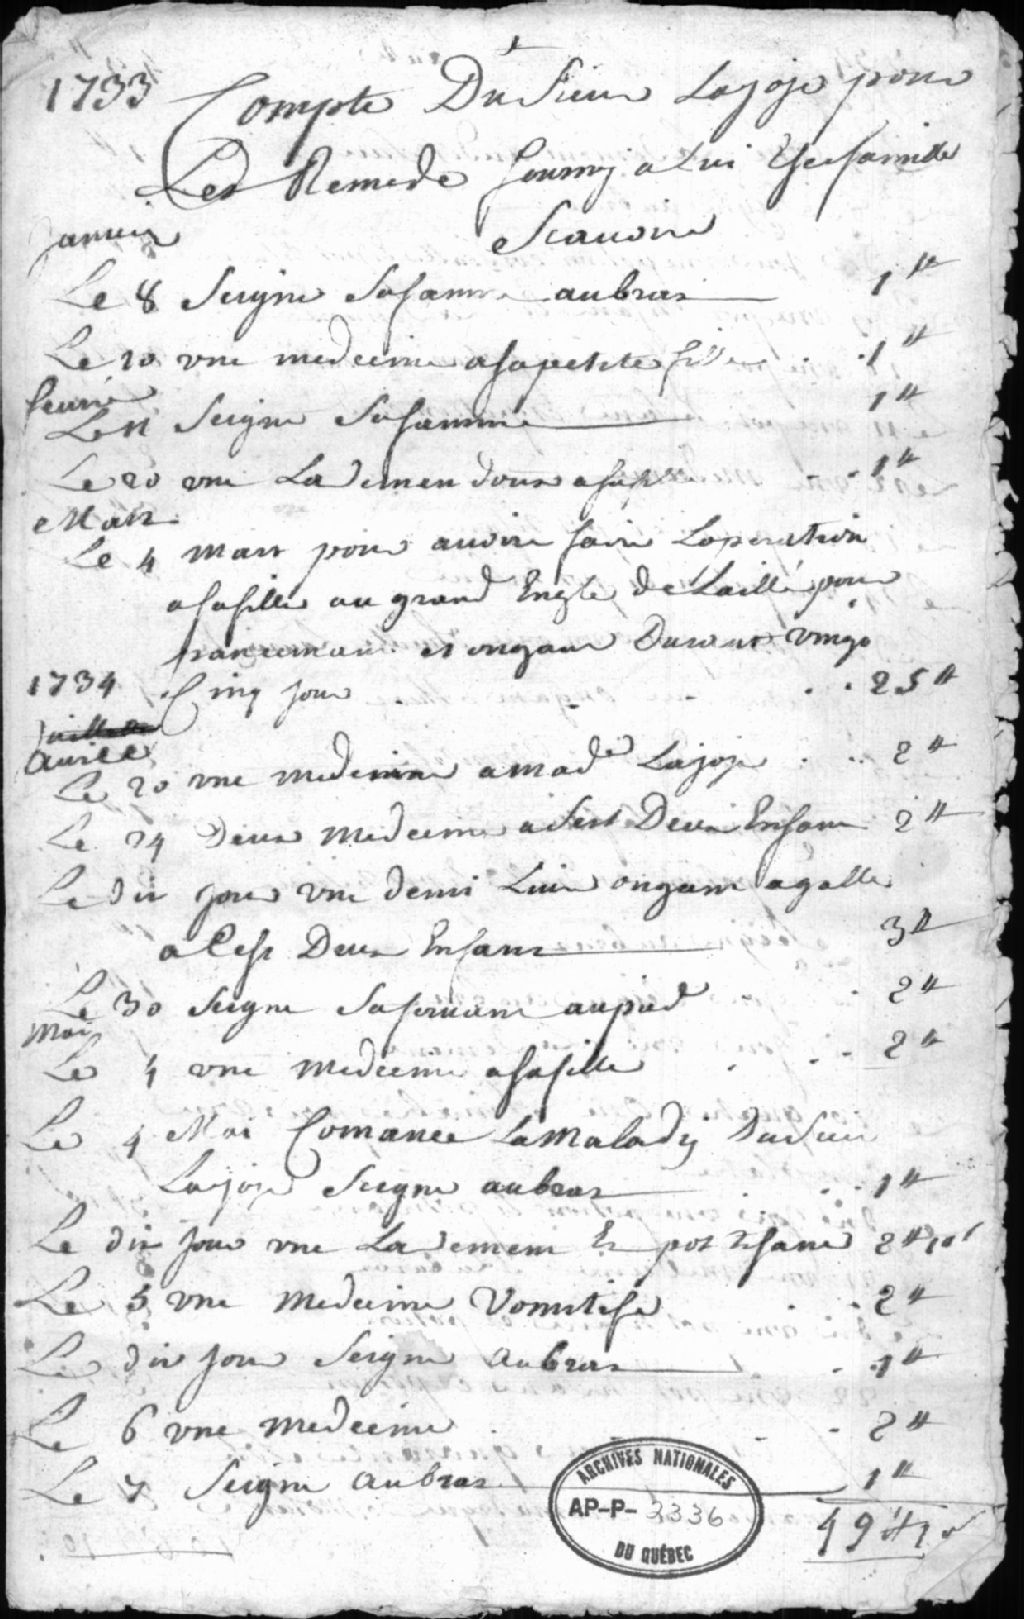 1733
Compte Du Sieur Lajoje pour
Les Remede fourny a Lui Et sa famille
Scauoire
januier
Le 8 Seigne Sa famme au bras 1#
Le 20 vne medecine a sa petite fille 1#
feurié
Le 11 Seigne Sa famme 1#
Le 20 vne Lauemen doux a sa fille 1#
Mars
Le 4 Mars pour auoire faire Loperation
a sa fille au grand Engle de Laille pour
pancemans et ongant Durant vingt
Cinq jour 25#
1734
auille
Le 20 vne medecinne a mad.e Lajoje 2#
Le 24 Deux medecine a Sest Deux Enfans 2#
Le dit jour vne demi Liure ongant a galle
a Cest Deux Enfans 3#
Le 30 Seigne Sa femme au pied 2#
Mai
Le 4 vne medecine a sa fille 2#
Le 4 Mai Comance La Maladij Du Sieur
Lajoje Seigne au bras 1#
Le dit jour vne Lauement Et pot tisanne 2# 10s
Le 5 vne medecine Vomitife 2#
Le dit jour Seigne au bras 1#
Le 6 vne medecine 2#
Le 7 Seigne au bras 1#
49# 10s
ARCHIVES NATIONALES
AP-P- 2336
DU QUÉBEC